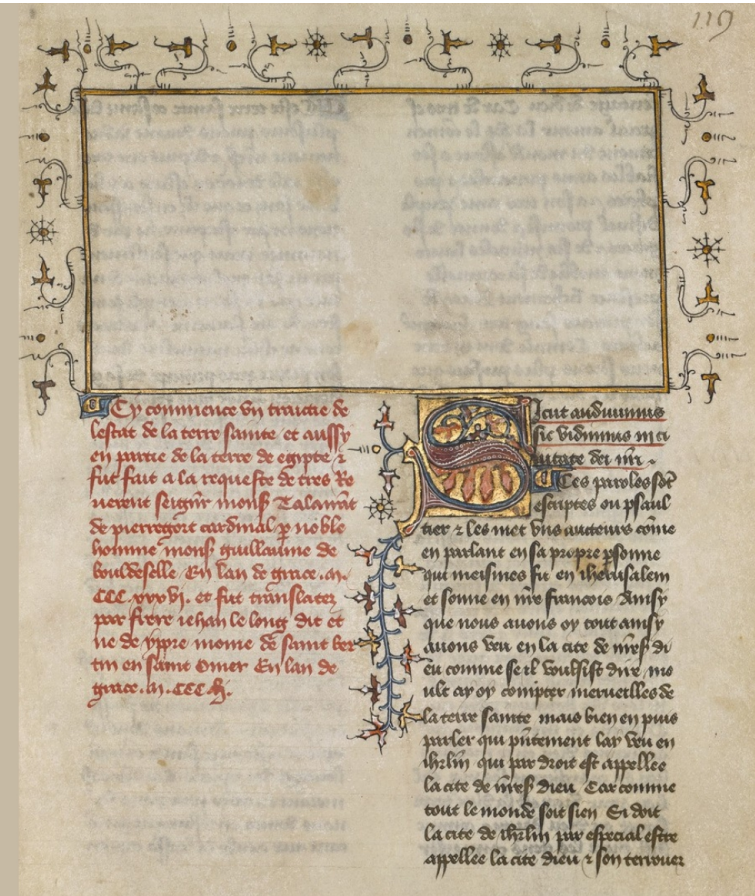 119
Cy commence vn traictie de
lestat de la terre sainte et aussy
en partie de la terre de egypte ⁊
fut fait a la requeste de tres Re
uerent seignr mons Talairāt
de pierregort cardinal ꝑ noble
homme mons guillaume de
bouldeselle En lan de grace .m.
CCC xxxvi. et fut translatez
par frere iehan le long dit et
ne de yppre moine de saint ber
tin en saint Omer En lan de
grace .m. CCC
Sicut audiuimus
sic vidimus in ci
uitate dei nri .
Ces paroles sōt
escriptes ou psaul
tier ⁊ les met vns aucteurs cōme
en parlant en sa propre ꝑsonne
qui meismes fu en iherusalem
et sonne en nre francois Ainsy
que nous auons oy tout ainsy
auons veu en la cite de nres di
eu comme se il voulsist dire mo
ult ay oy compter merueilles de
la terre sainte mais bien en puis
parler qui pntement lay veu en
ihrlm qui par droit est appellee
la cite de nres dieu Car comme
tout le monde soit sien Si doit
la cite de ihrlm par especial estre
appellee la cite dieu ⁊ son terrouer